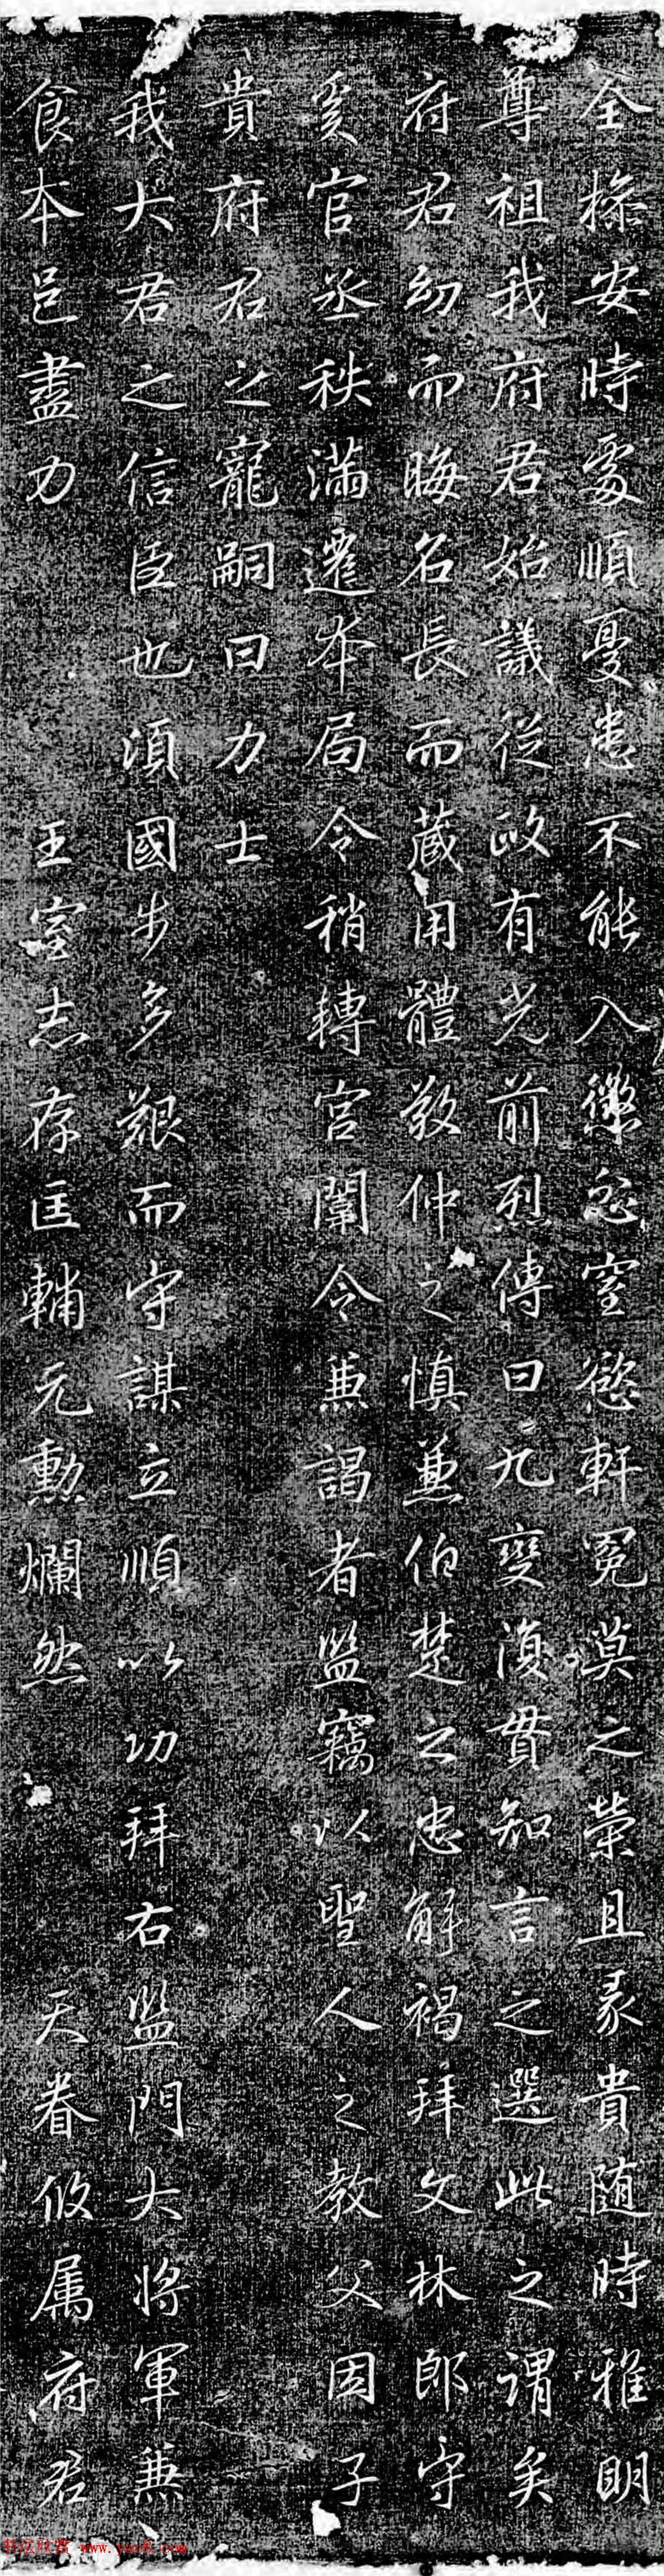 全操安時處順憂患不能入懲忿窒慾軒冕莫之榮且家貴随時雅明
尊祖我府君始議從政有光前烈傳曰九變復貫知言之選此之謂矣
府君幼而晦名長而蔵用體敬仲之慎兼伯楚之忠解褐拜文林郎守
奚官丞秩滿遷本局令稍轉宮闈令兼謁者監竊以聖人之教父因子
貴府君之寵嗣曰力士
我大君之信臣也頃國步多艱而守謀立順以功拜右監門大将軍兼
食本邑盡力 王室志存匡輔元勳爛然 天眷攸属府君
书法欣赏 www.yac8.com